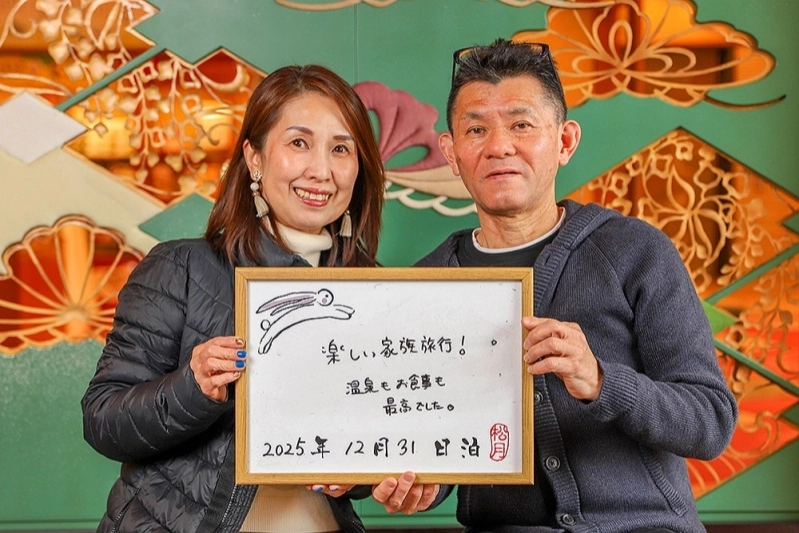 楽しい家族旅行！
温泉もお食事も
最高でした。
2025年 12月31日泊
松月